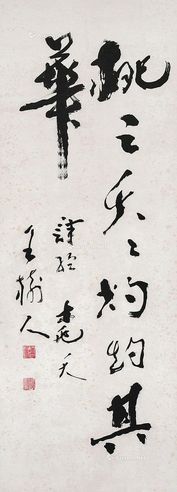 桃之夭〻灼灼其
華
詩經 桃夭
王樹人